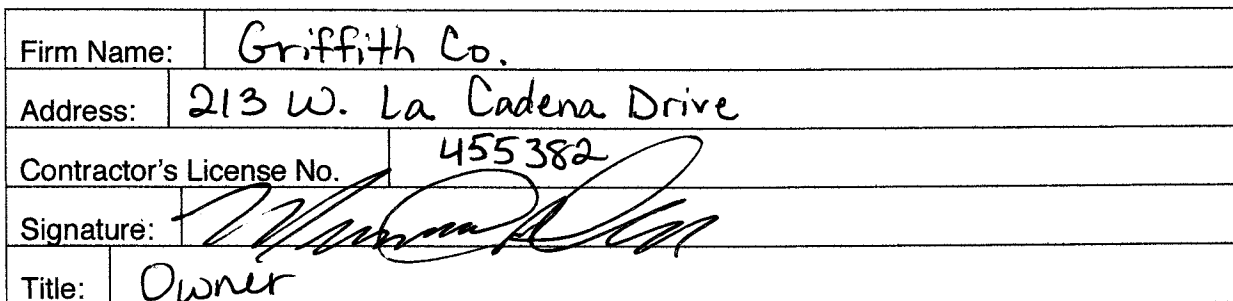 Firm Name: Griffith Co.
Address: 213 W. La Cadena Drive
Contractor's License No. 455382
Signature:
Title: Owner